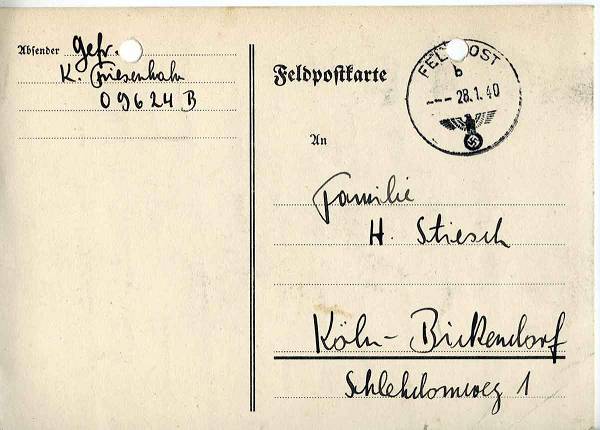 Absender Gefr.
K. Friesenhahn
09624 B
Feldpostkarte
FELDPOST
b
--- 28.1.40
An
Familie
H. Stiesch
Köln-Bickendorf
Schlehdornweg 1